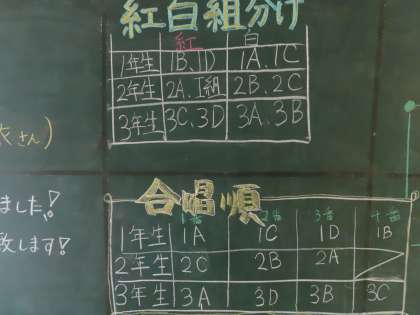 紅白組分け
紅 白
1年生 1B、1D 1A、1C
2年生 2A、I組 2B、2C
3年生 3C、3D 3A、3B
さん)
ました!
致します!
合唱順
1番 2番 3番 十番
1年生 1A 1C 1D 1B
2年生 2C 2B 2A
3年生 3A 3D 3B 3C